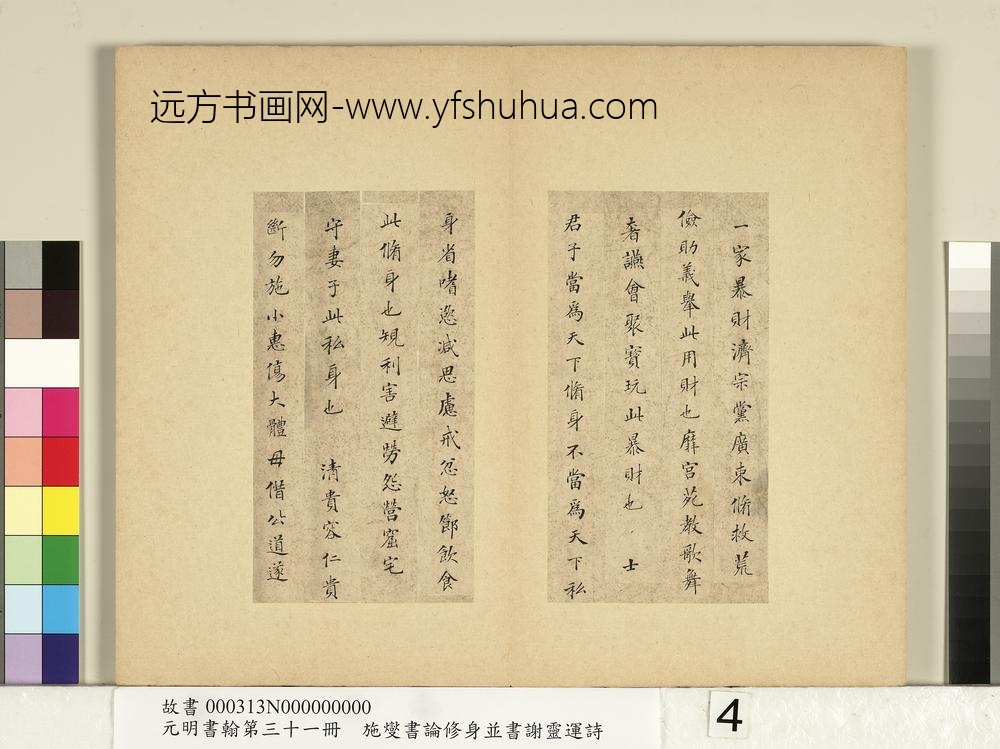 远方书画网-www.yfshuhua.com
一家暴財濟宗黨廣束脩救荒
儉助義舉此用財也靡宮苑教歌舞
奢讌會聚寶玩此暴財也 士
君子當爲天下脩身不當爲天下私
身省嗜慾減思慮戒忿怒節飲食
此脩身也規利害避勞怨營窟宅
守妻子此私身也 清貴容仁貴
斷勿施小惠傷大體毋借公道遂
故書000313N000000000
元明書翰第三十一冊 施燮書論修身並書謝靈運詩
4